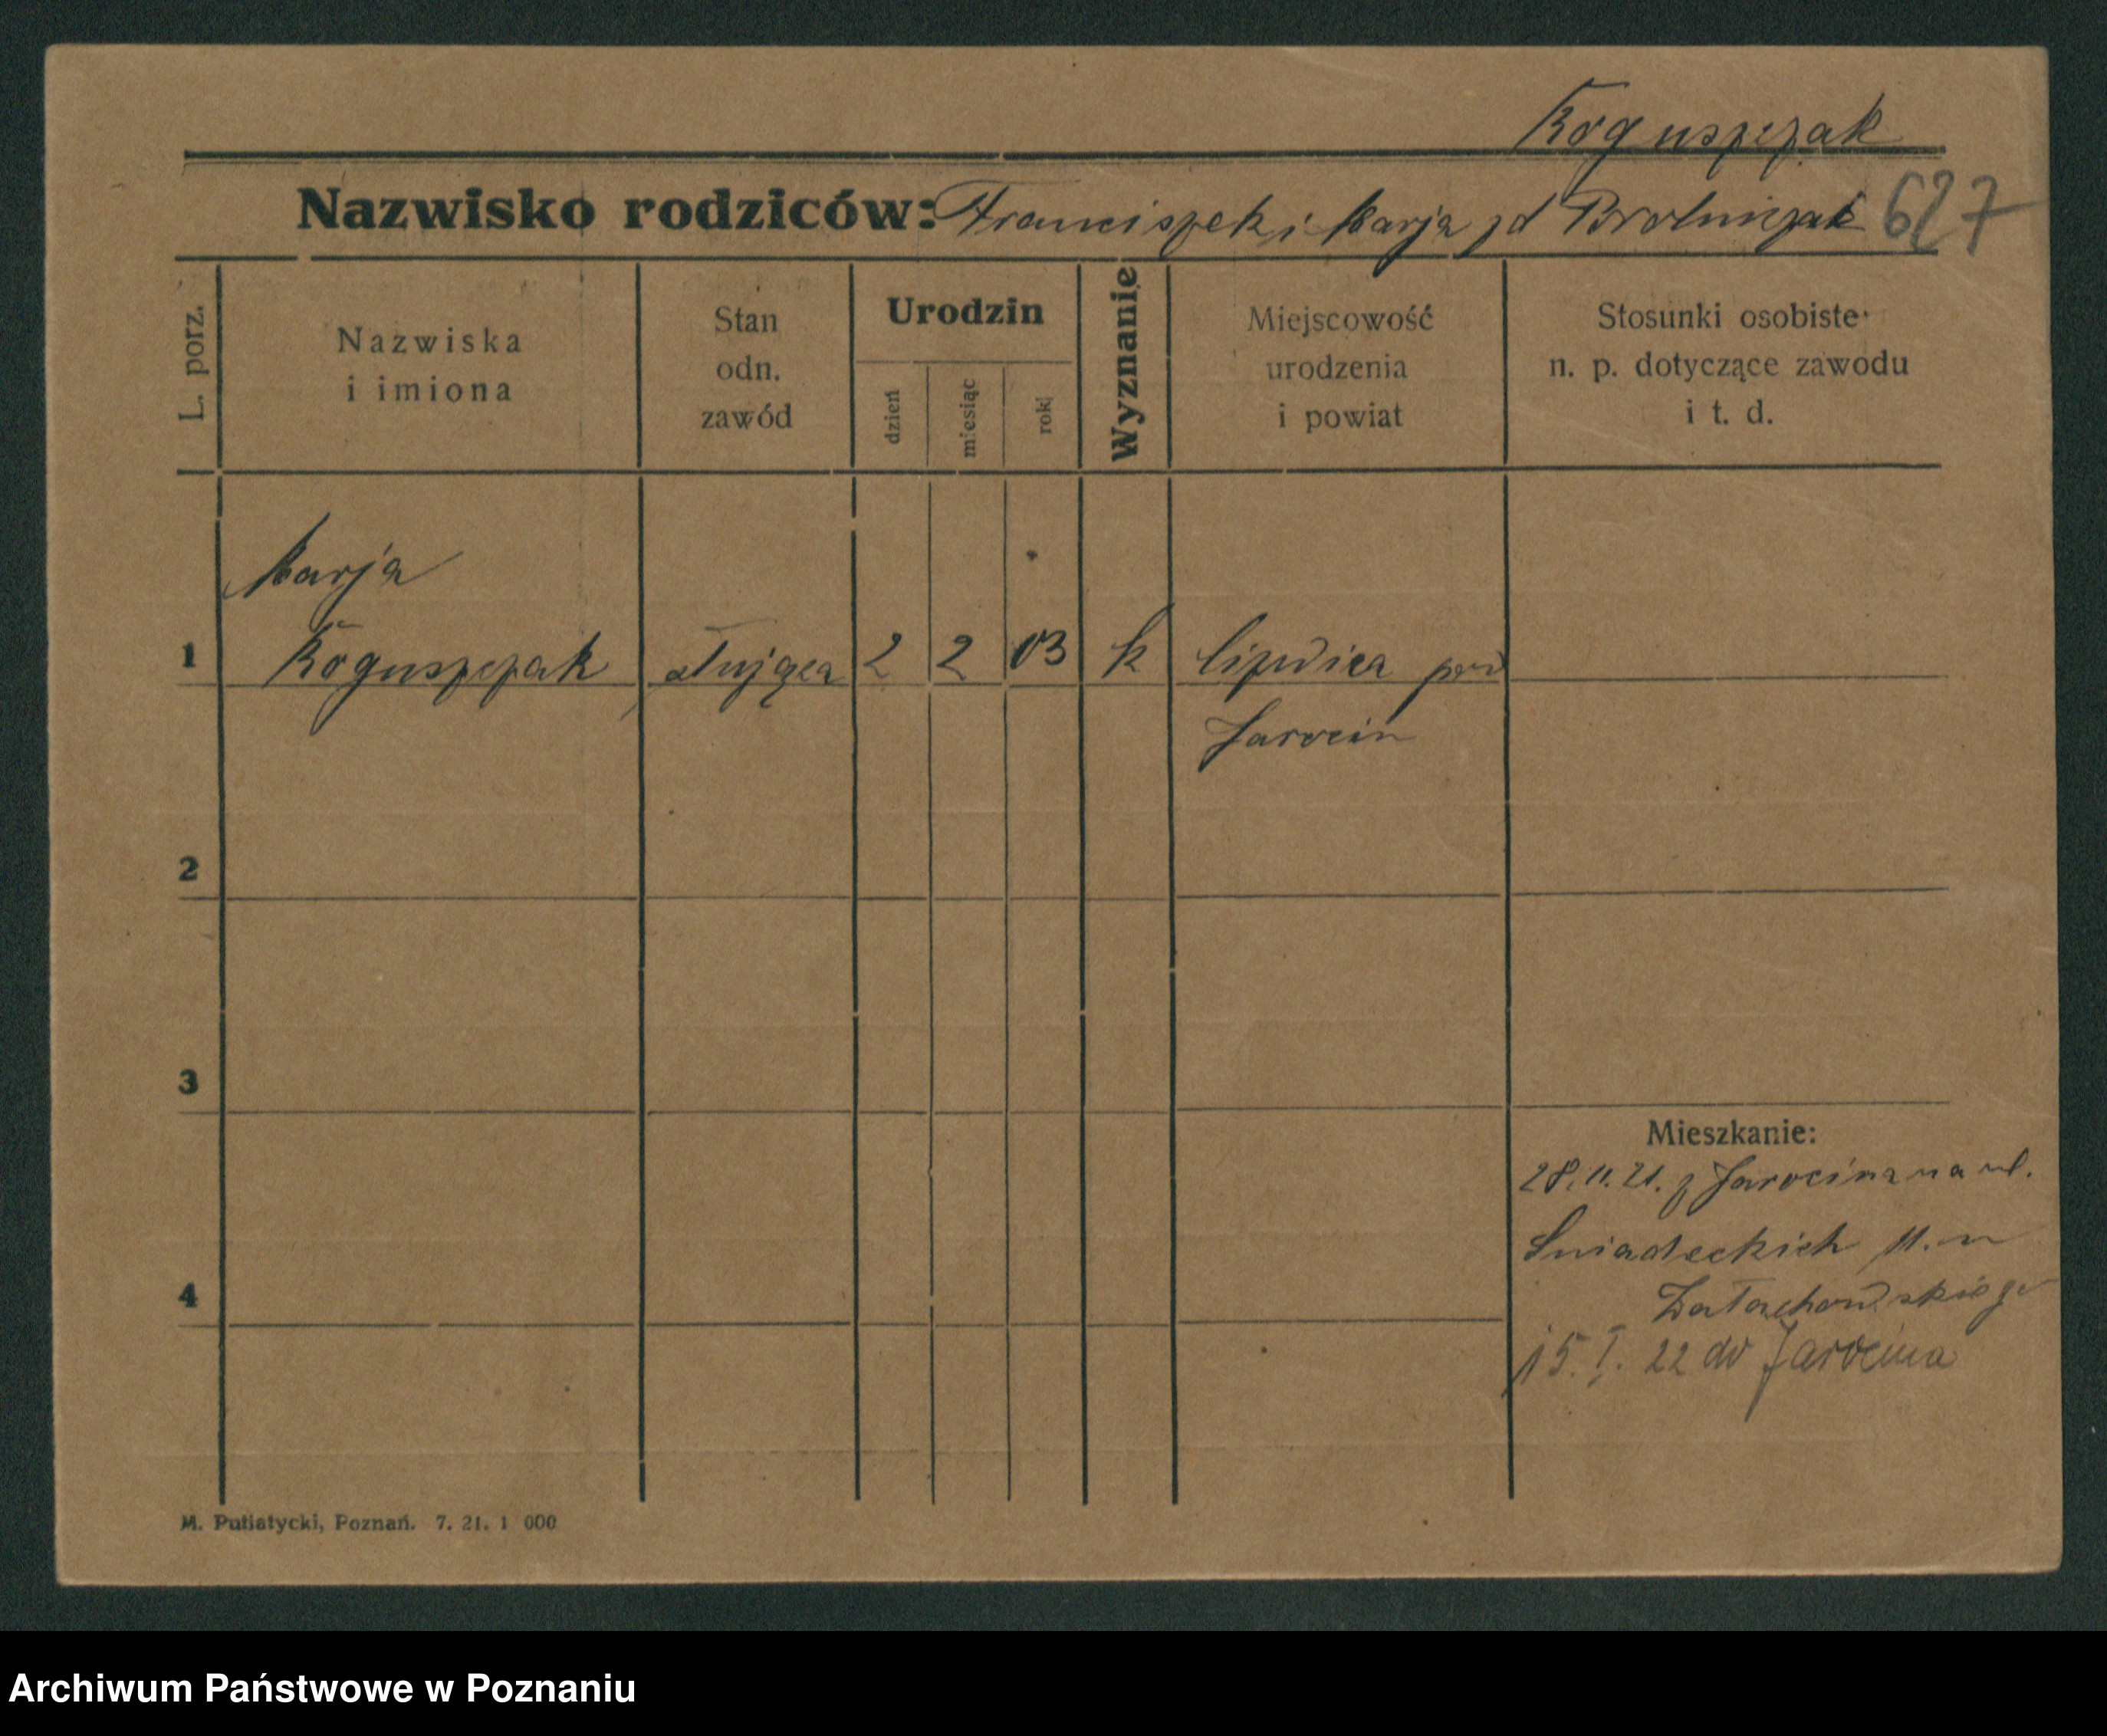 Roguszczak
Nazwisko rodziców: Franciszek i Marja zd Brolniczak 627
L. porz.
Nazwiska
i imiona
Stan
odn.
zawód
Urodzin
dzień
miesiąc
rok
Wyznanie
Miejscowość
urodzenia
i powiat
Stosunki osobiste
n. p. dotyczące zawodu
i t. d.
Marja
1 Roguszczak służąca 2 2 03 k pow
Jarocin
2
3
4
Mieszkanie:
28. 11. 21. z Jarocina na ul.
Śniadeckich 11. u
Załachowskiego
15. I. 22 do Jarocina
M. Putiatycki, Poznań. 7. 21. 1 000
Archiwum Państwowe w Poznaniu